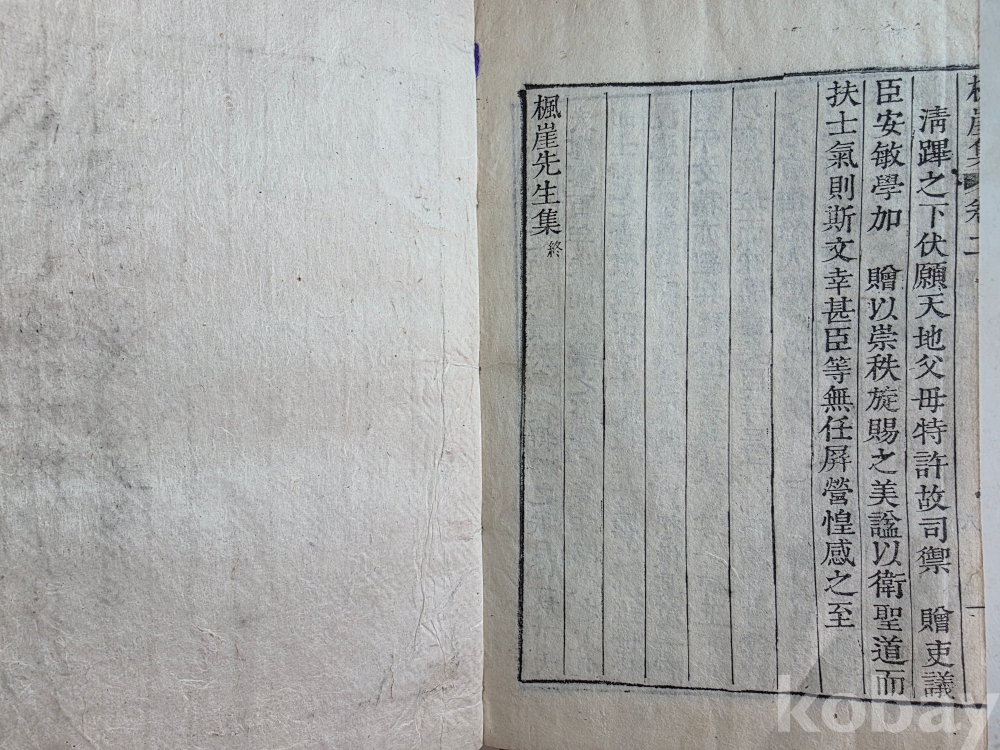 楓崖集 卷二
淸蹕之下伏願天地父母特許故司禦 贈吏議
臣安敏學加 贈以崇秩旋賜之美諡以衛聖道而
扶士氣則斯文幸甚臣等無任屛營惶感之至
楓崖先生集 終
kobay